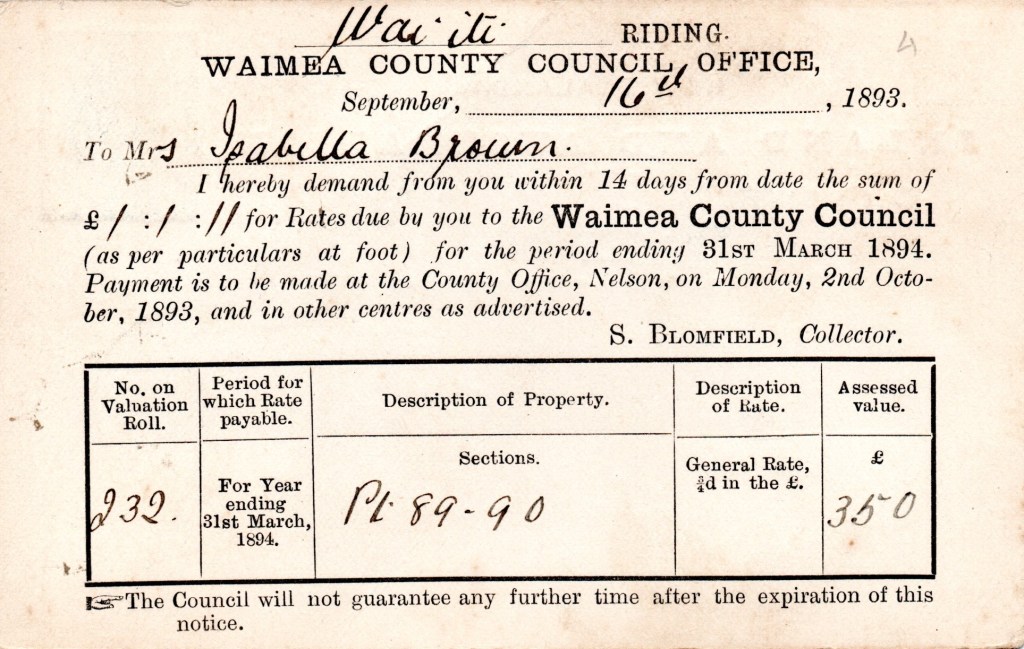 Wai-iti RIDING.
4
WAIMEA COUNTY COUNCIL OFFICE,
September, 16th, 1893.
To Mrs Isabella Brown.
I hereby demand from you within 14 days from date the sum of
£1:1:11 for Rates due by you to the Waimea County Council
(as per particulars at foot) for the period ending 31ST MARCH 1894.
Payment is to be made at the County Office, Nelson, on Monday, 2nd Octo-
ber, 1893, and in other centres as advertised.
S. BLOMFIELD, Collector.
No. on
Valuation
Roll.
Period for
which Rate
payable.
Description of Property.
Description
of Rate.
Assessed
value.
232.
For Year
ending
31st March,
1894.
Sections.
Pt 89-90
General Rate,
¾d in the £.
£
350
☞The Council will not guarantee any further time after the expiration of this
notice.